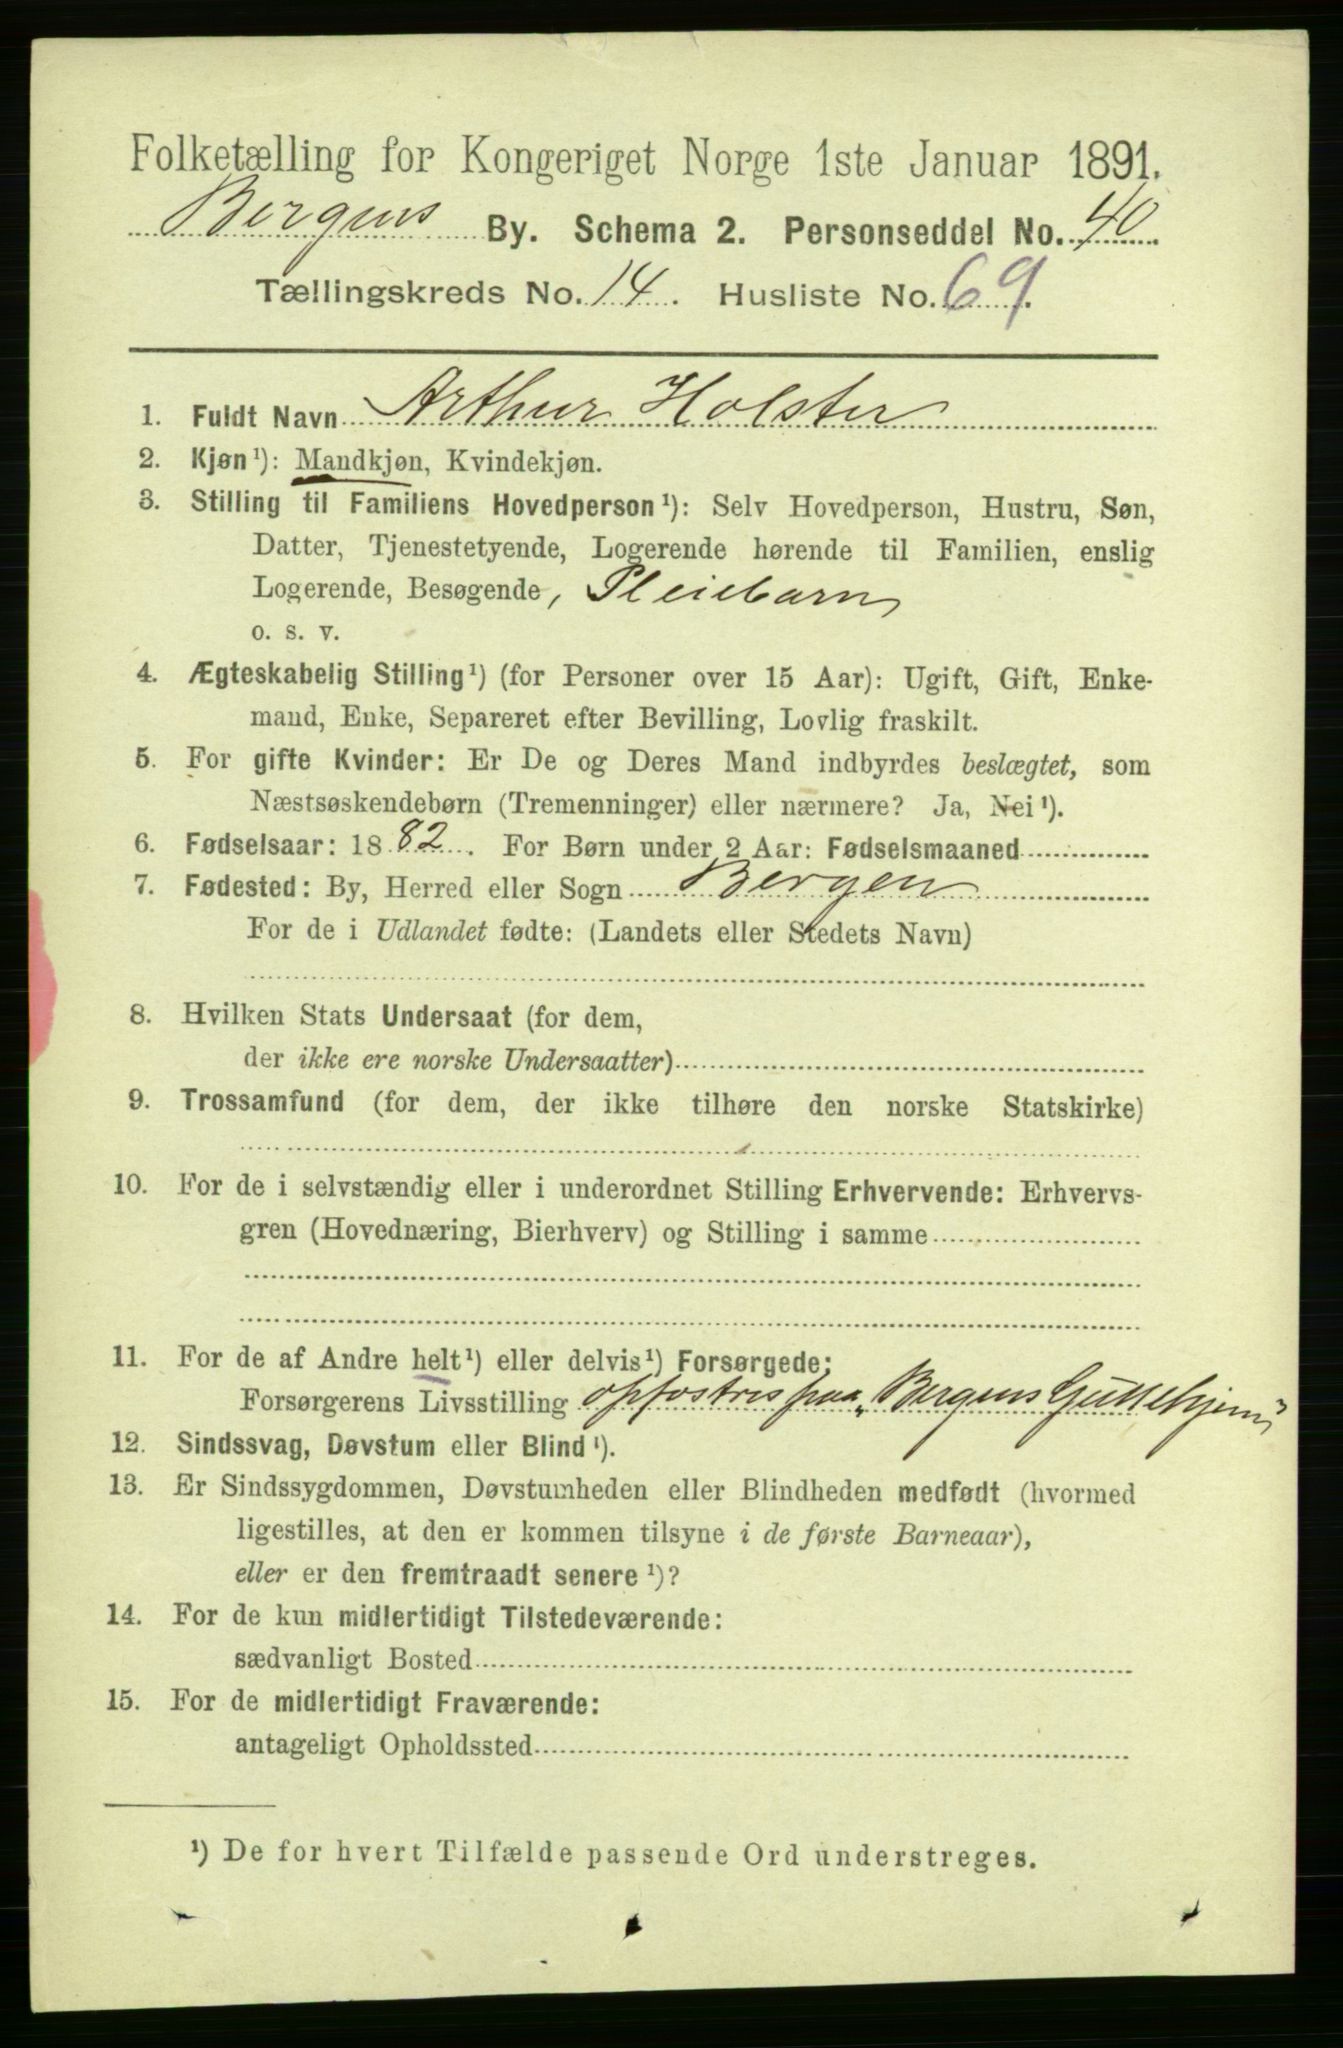 Folketælling for Kongeriget Norge 1ste Januar 1891.
Bergens By. Schema 2. Personseddel No. 40
Tællingskreds No. 14. Husliste No. 69.
1. Fuldt Navn Arthur Holster
2. Kjøn¹): Mandkjøn, Kvindekjøn.
3. Stilling til Familiens Hovedperson¹): Selv Hovedperson, Hustru, Søn,
Datter, Tjenestetyende, Logerende hørende til Familien, enslig
Logerende, Besøgende, Pleiebarn
o. s. v.
4. Ægteskabelig Stilling¹) (for Personer over 15 Aar): Ugift, Gift, Enke-
mand, Enke, Separeret efter Bevilling, Lovlig fraskilt.
5. For gifte Kvinder: Er De og Deres Mand indbyrdes beslægtet, som
Næstsøskendebørn (Tremenninger) eller nærmere? Ja, Nei¹).
6. Fødselsaar: 1882. For Børn under 2 Aar: Fødselsmaaned
7. Fødested: By, Herred eller Sogn Bergen
For de i Udlandet fødte: (Landets eller Stedets Navn)
8. Hvilken Stats Undersaat (for dem,
der ikke ere norske Undersaatter)
9. Trossamfund (for dem, der ikke tilhøre den norske Statskirke)
10. For de i selvstændig eller i underordnet Stilling Erhvervende: Erhvervs-
gren (Hovednæring, Bierhverv) og Stilling i samme
11. For de af Andre helt¹) eller delvis¹) Forsørgede:
Forsørgerens Livsstilling opfostres paa „Bergens Guttehjem”
12. Sindssvag, Døvstum eller Blind¹).
13. Er Sindssygdommen, Døvstumheden eller Blindheden medfødt (hvormed
ligestilles, at den er kommen tilsyne i de første Barneaar),
eller er den fremtraadt senere¹)?
14. For de kun midlertidigt Tilstedeværende:
sædvanligt Bosted
15. For de midlertidigt Fraværende:
antageligt Opholdssted
¹) De for hvert Tilfælde passende Ord understreges.